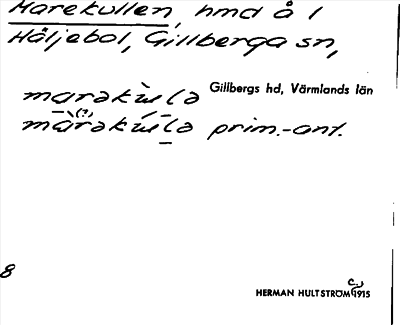 Harekullen, hmd å 1
Håljebol, Gillberga sn,
Gillbergs hd, Värmlands län
prim.-ant.
8
HERMAN HULTSTRÖM 1915